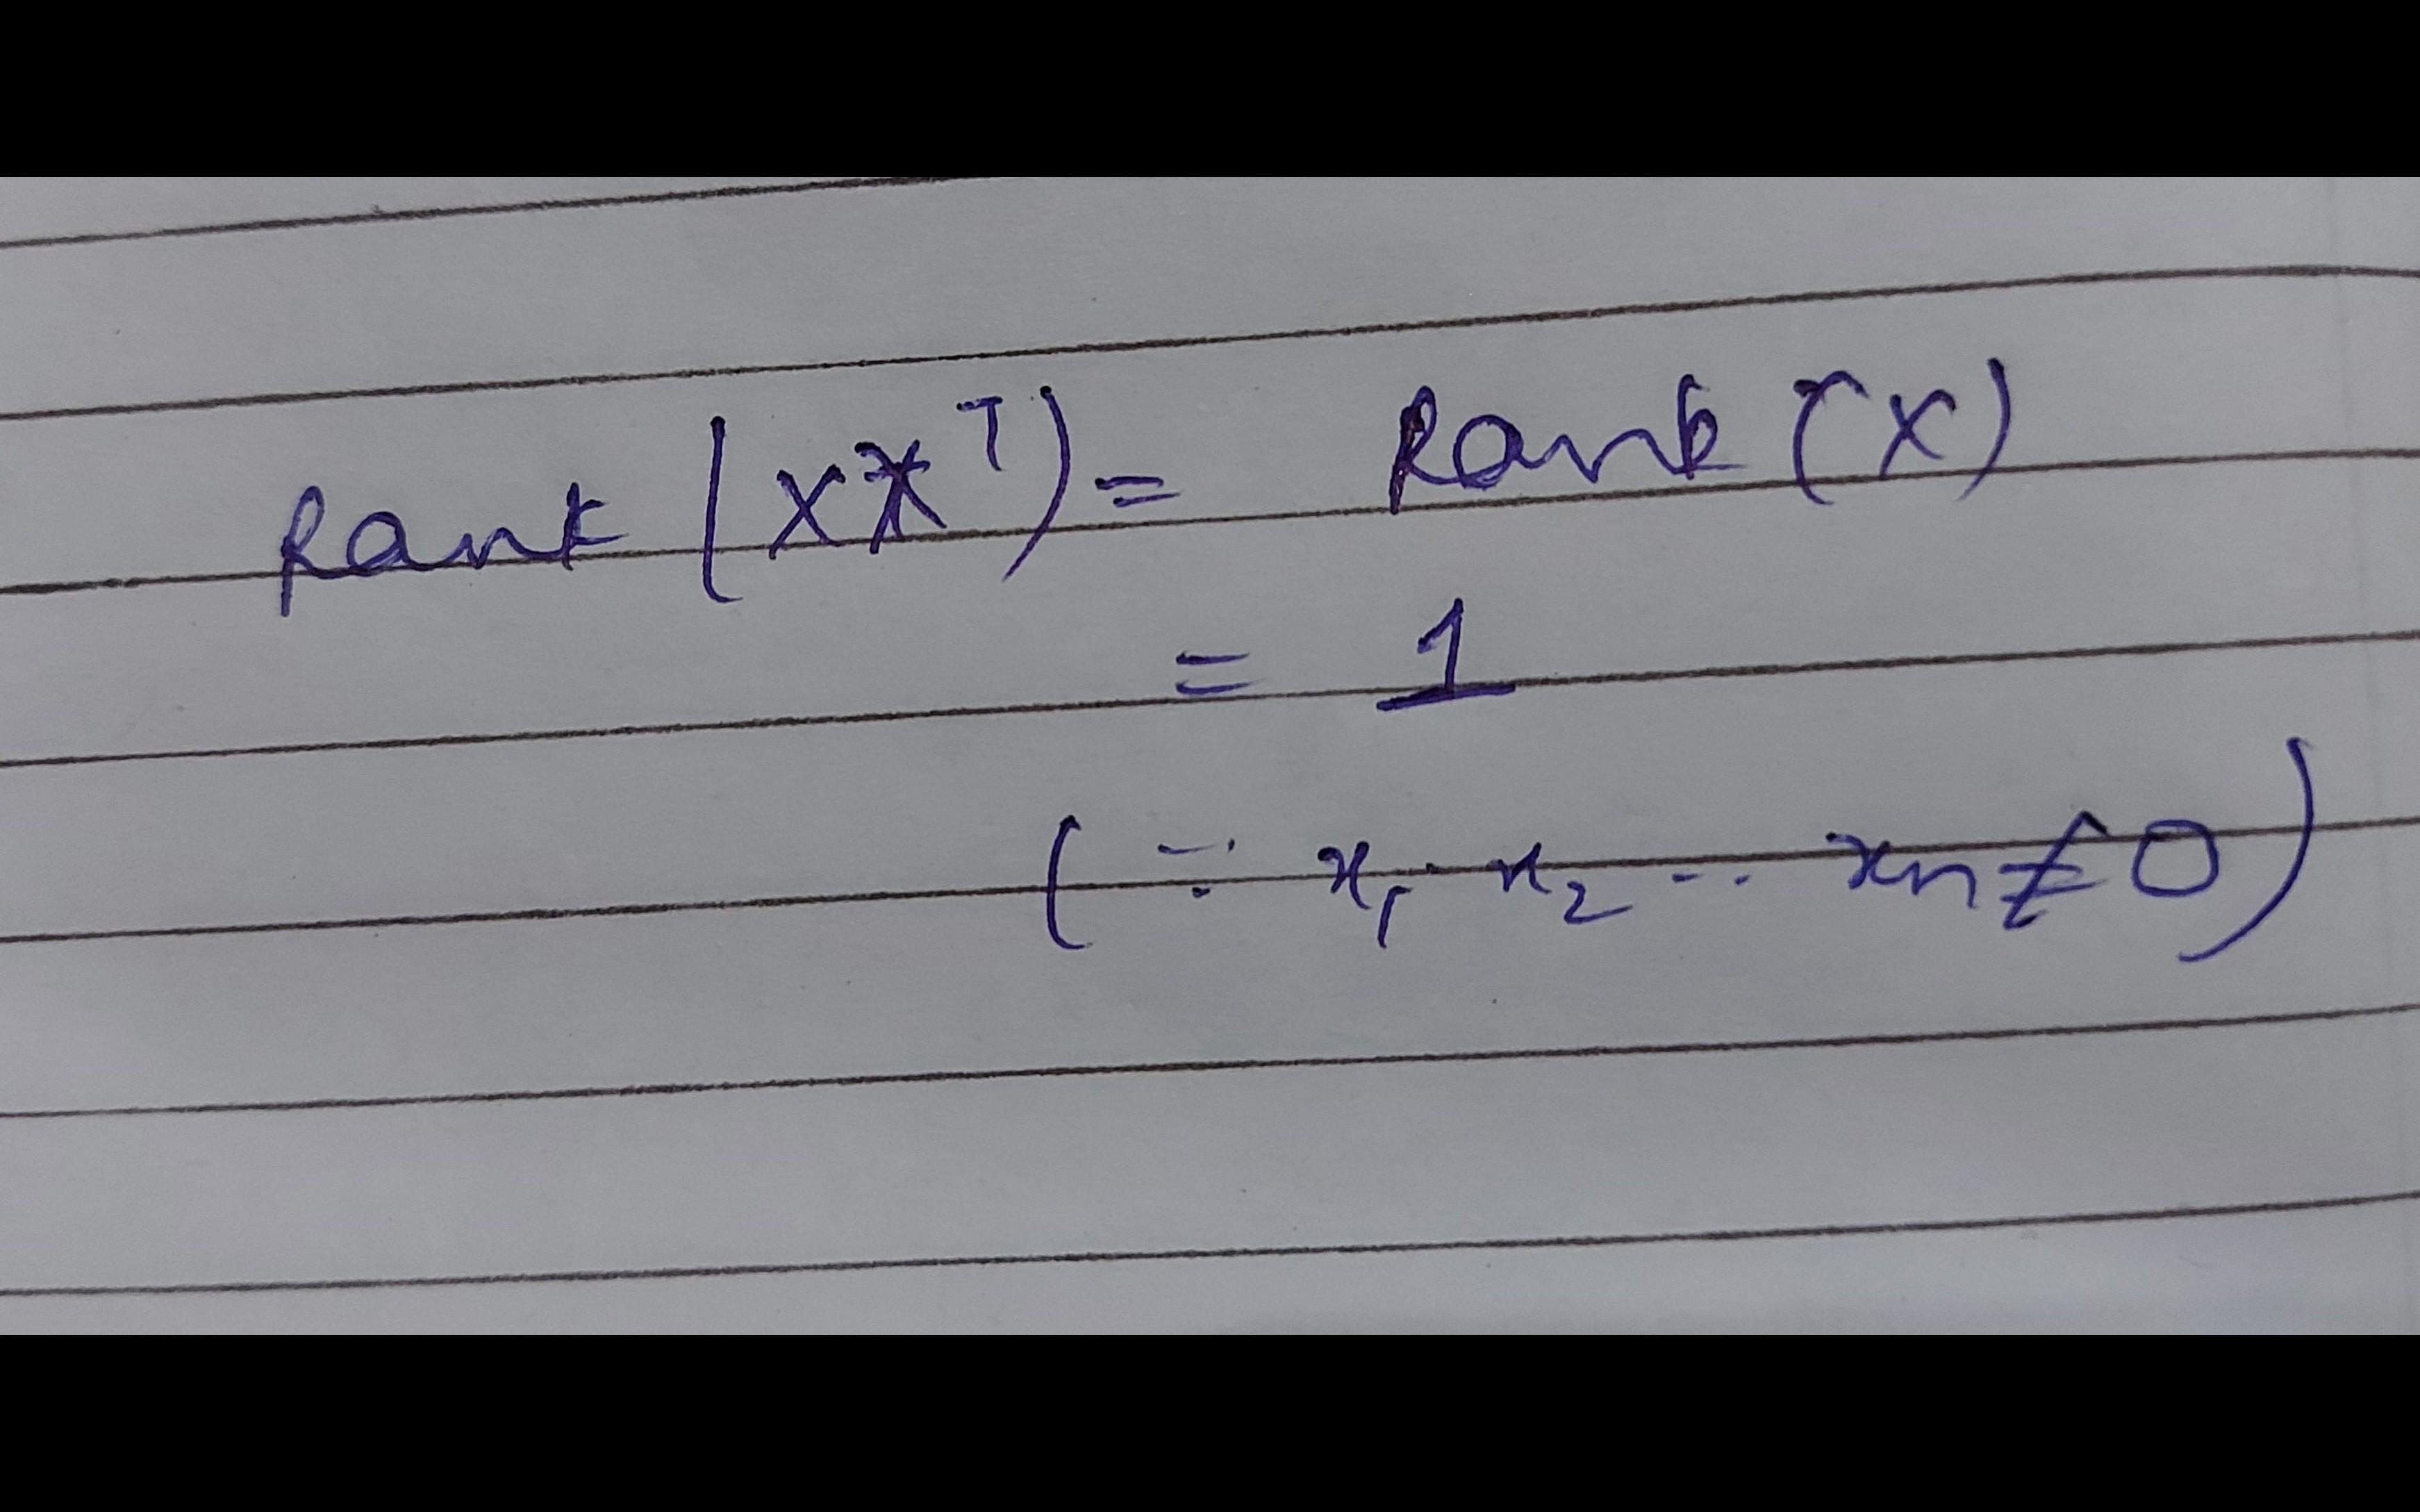 Rank (XX^T) = Rank (X)
= 1
(∵ x₁ x₂ -- xn ≠ 0)